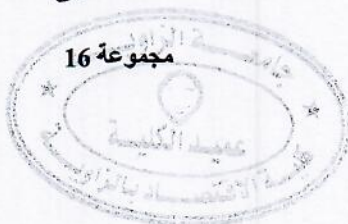 مجموعة 16
جامعة الزاوية
عميد الكلية
كلية الاقتصاد بالزاوية